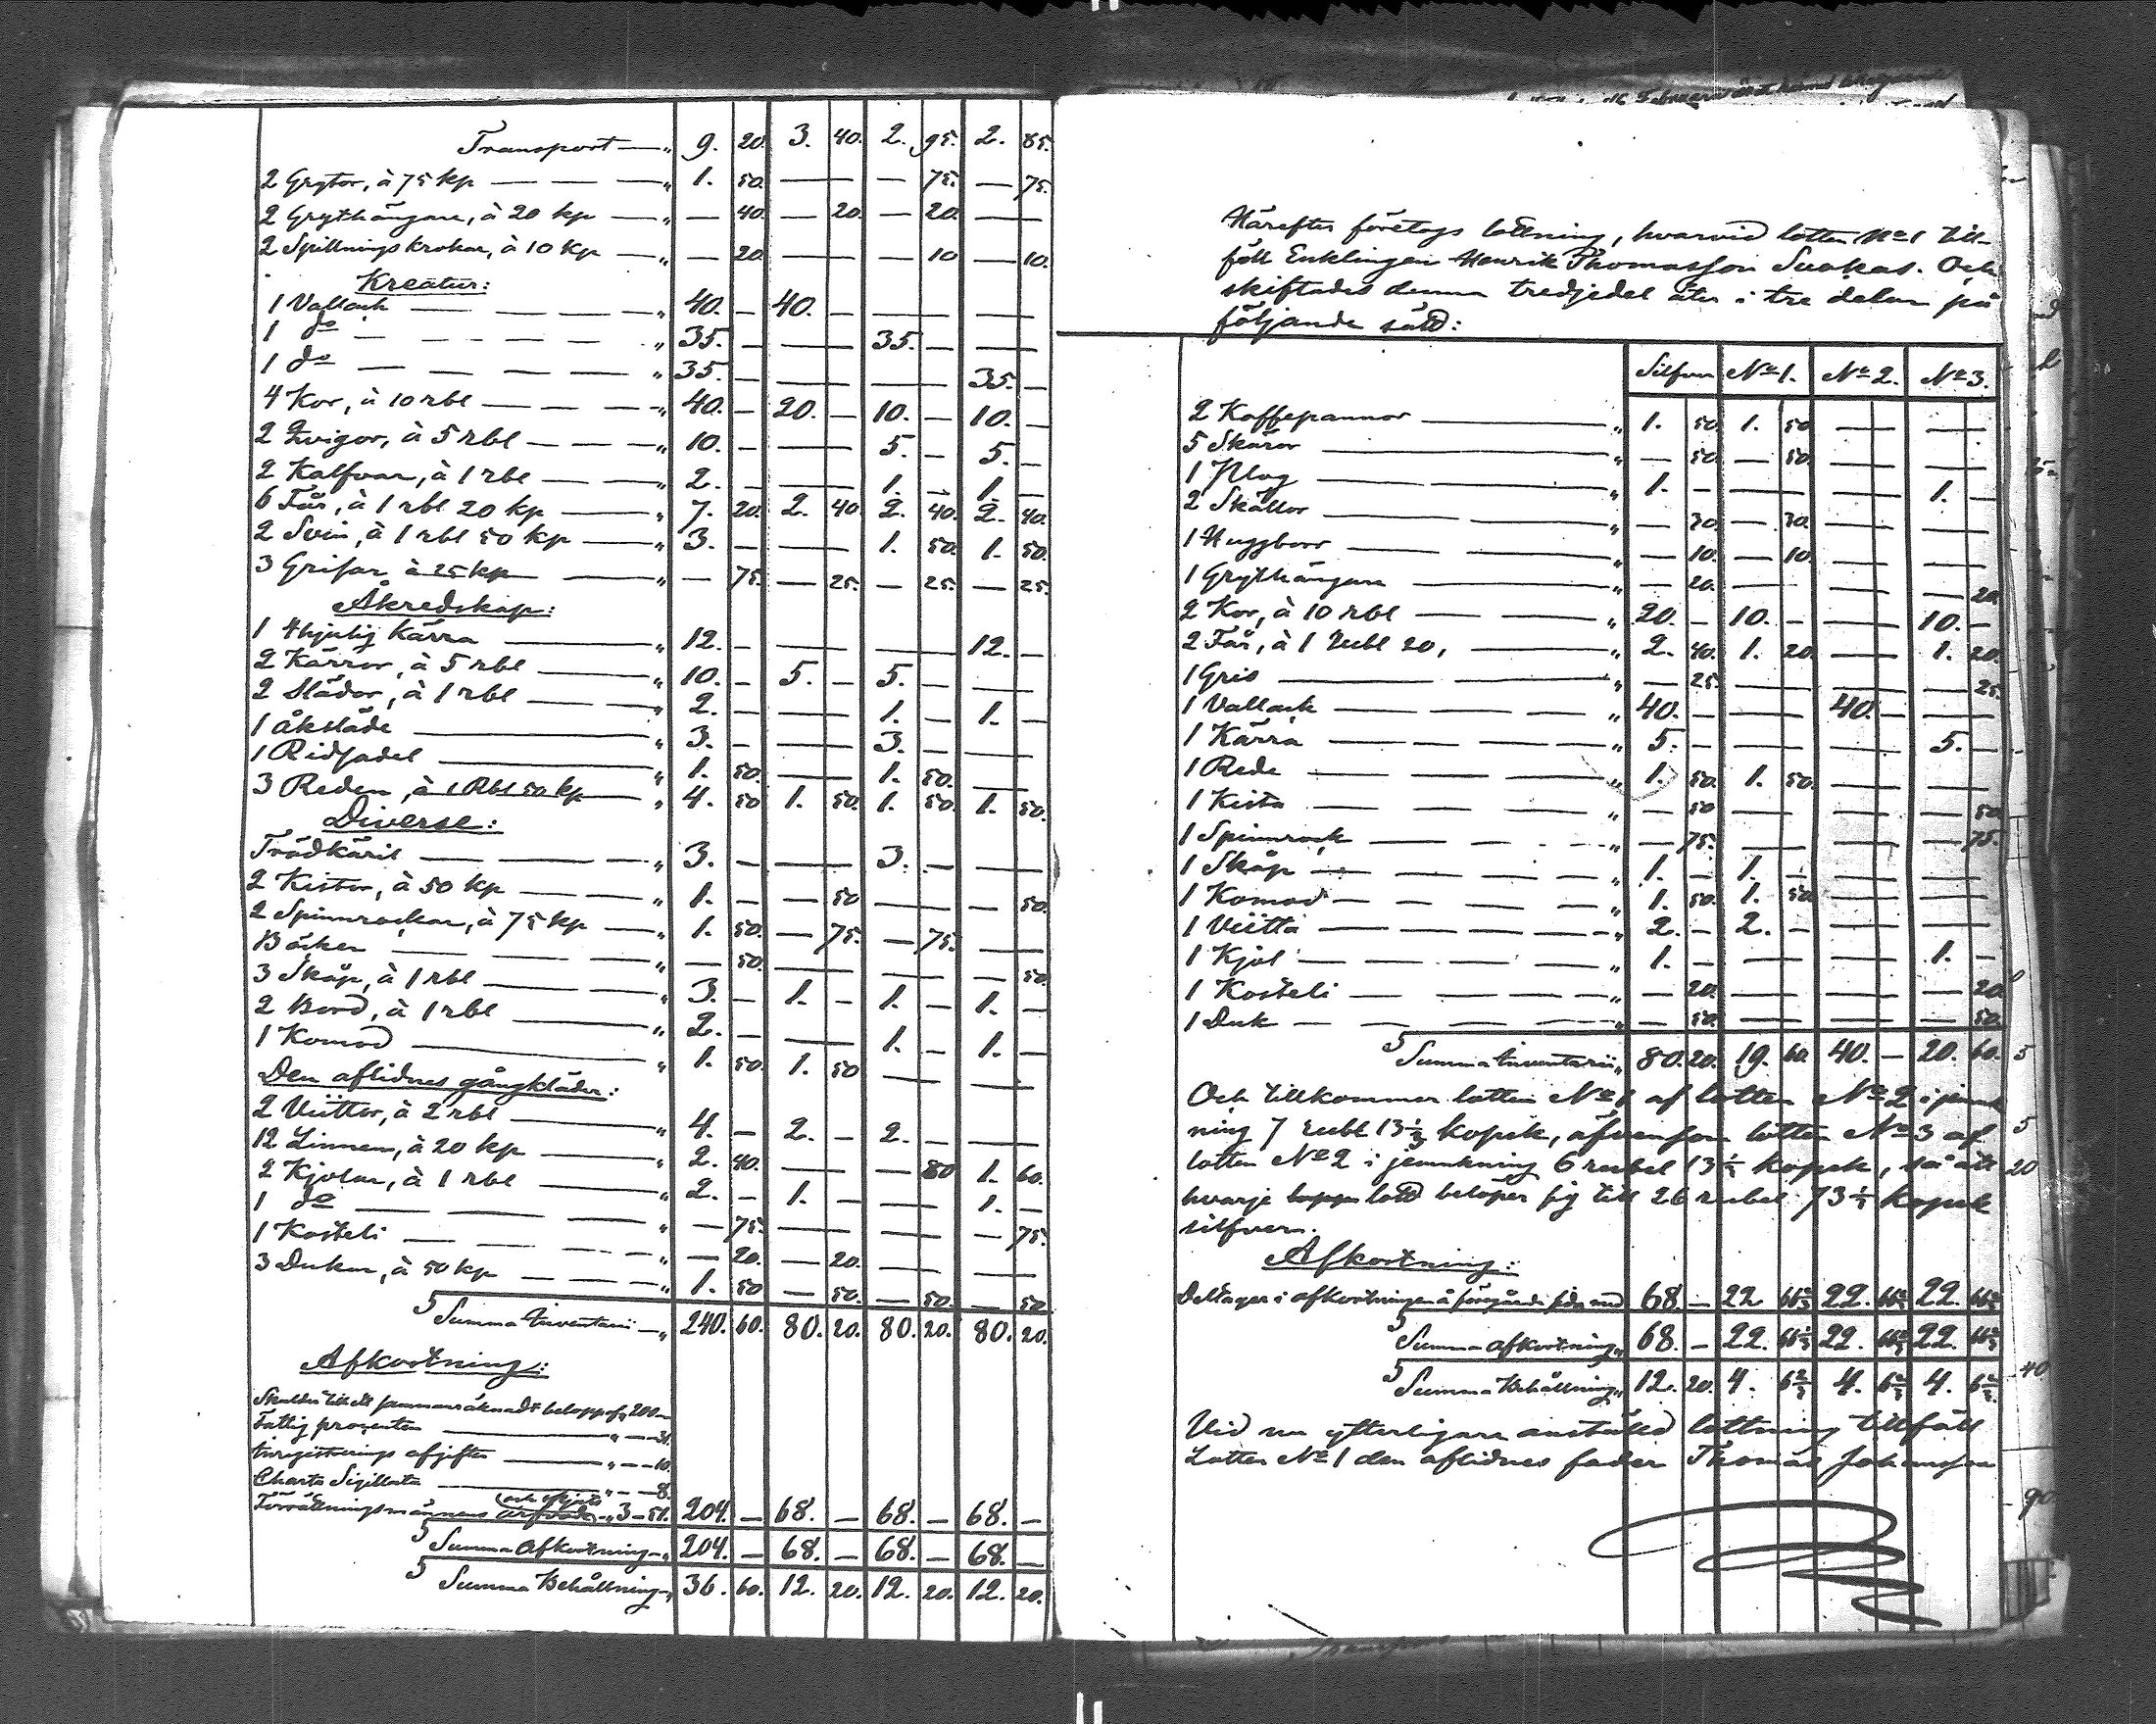 Transport — „ 9. 20. 3. 40. 2. 95. 2. 85.
2 Grytor, à 75 kp — — — „ 1. 50. — — — 75. — 75.
2 Grythängare, à 20 kp — „ — 40. — 20. — 20. — —
2 Spillningskrokar, à 10 kp — „ — 20. — — — 10 — 10.
Kreatur:
1 Vallack — — — — „ 40. — 40. — — — — —
1 do — — — — — „ 35. — — — 35. — — —
1 do — — — — — „ 35. — — — — — 35. —
4 Kor, à 10 rbl — — — „ 40. — 20. — 10. — 10. —
2 Qvigor, à 5 rbl — — — „ 10. — — — 5. — 5. —
2 Kalfvar, à 1 rbl — — „ 2. — — — 1. — 1. —
6 Får, à 1 rbl 20 kp — — „ 7. 20. 2. 40. 2. 40. 2. 40.
2 Svin, à 1 rbl 50 kp — „ 3. — — — 1. 50. 1. 50.
3 Grisar à 25 kp — — „ — 75. — 25. — 25. — 25.
Åkredskap:
1 4hjulig Kärra — „ 12. — — — — — 12. —
2 Kärror, à 5 rbl — „ 10. — 5. — 5. — — —
2 Slädor, à 1 rbl — „ 2. — — — 1. — 1. —
1 åksläde — „ 3. — — — 3. — — —
1 Ridsadel — „ 1. 50. — — 1. 50. — —
3 Reden, à 1 Rbl 50 kp — „ 4. 50 1. 50. 1. 50. 1. 50.
Diverse:
Trädkäril — — — „ 3. — — — 3. — — —
2 Kistor, à 50 kp — — — „ 1. — — 50 — — — 50.
2 Spinnrockar, à 75 kp — „ 1. 50. — 75. — 75. — —
Böcker — — — — „ — 50. — — — — — 50.
3 Skåp, à 1 rbl — „ 3. — 1. — 1. — 1. —
2 Bord, à 1 rbl — „ 2. — — — 1. — 1. —
1 Komod — „ 1. 50. 1. 50 — — — —
Den aflidnes gångkläder:
2 Viittor, à 2 rbl — „ 4. — 2. — 2. — — —
12 Linnen, à 20 kp — „ 2. 40. — — — 80 1. 60.
2 Kjolar, à 1 rbl — „ 2. — 1. — — — 1. —
1 do — — — — „ — 75. — — — — — 75.
1 Kosteli — — — — „ — 20. — 20. — — — —
3 Dukar, à 50 kp — — — „ 1. 50 — 50. — 50. — 50
Summa Inventarii — „ 240. 60. 80. 20. 80. 20. 80. 20.
Afkortning:
Skulder till ett sammanräknadt belopp af „ 200 —
Fattig procenten — „ — 31.
Inregistrerings afgiften — „ — 10.
Charta Sigillata — „ — 8.
och skjuts
Förrättningsmännens arfvode — „ 3 — 51. 204. — 68. — 68. — 68. —
Summa Afkortning — „ 204. — 68. — 68. — 68. —
Summa Behållning — „ 36. 60. 12. 20. 12. 20. 12. 20.
Härefter företogs lottning, hvarvid lotten No 1 till-
föll Enklingen Henrik Thomasson Suokas. Och
skiftades denna tredjedel åter i tre delar på
följande sätt:
Silfver No 1. No 2. No 3.
2 Kaffepannor — „ 1. 50. 1. 50 — — — —
5 Skäror — „ — 50. — 50. — — — —
1 Plog — „ 1. — — — — — 1. —
2 Skällor — „ — 30. — 30. — — — —
1 Huggborr — „ — 10. — 10. — — — —
1 Grythängare — „ — 20. — — — — — 20.
2 Kor, à 10 rbl — „ 20. — 10. — — — 10. —
2 Får, à 1 Rubl 20, — „ 2. 40. 1. 20. — — 1. 20.
1 Gris — „ — 25. — — — — — 25.
1 Vallack — „ 40. — — — 40. — — —
1 Kärra — — — „ 5. — — — — — 5. —
1 Rede — — — „ 1. 50. 1. 50. — — — —
1 Kista — — — „ — 50 — — — — — 50
1 Spinnrock — — „ — 75. — — — — — 75.
1 Skåp — — — „ 1. — 1. — — — — —
1 Komod — — — „ 1. 50. 1. 50 — — — —
1 Viitta — — — „ 2. — 2. — — — — —
1 Kjol — — — „ 1. — — — — — 1. —
1 Kosteli — — — „ — 20. — — — — — 20
1 Duk — — — „ — 50. — — — — — 50.
Summa Inventarii „ 80. 20. 19. 60. 40. — 20. 60.
Och tillkommer lotten No 1 af lotten No 2 i jemk
ning 7 rubl 13 1/3 kopek, äfvensom lotten No 3 af
lotten No 2 i jemnkning 6 rubel 13 1/3 kopek, så att
hvarje lott belöper sig till 26 rubel 73 1/3 kopek
silfver.
Afkortning:
Deltager i afkortningen å föregående sida med 68 — 22 66 2/3 22. 66 2/3 22. 66 2/3
Summa afkortning „ 68. — 22. 66 2/3 22. 66 2/3 22. 66 2/3
Summa Behållning „ 12. 20. 4. 6 2/3 4. 6 2/3 4. 6 2/3
Vid nu ytterligare anstäld lottning tillföll
Lotten No 1 den aflidnes fader Thomas Johansson